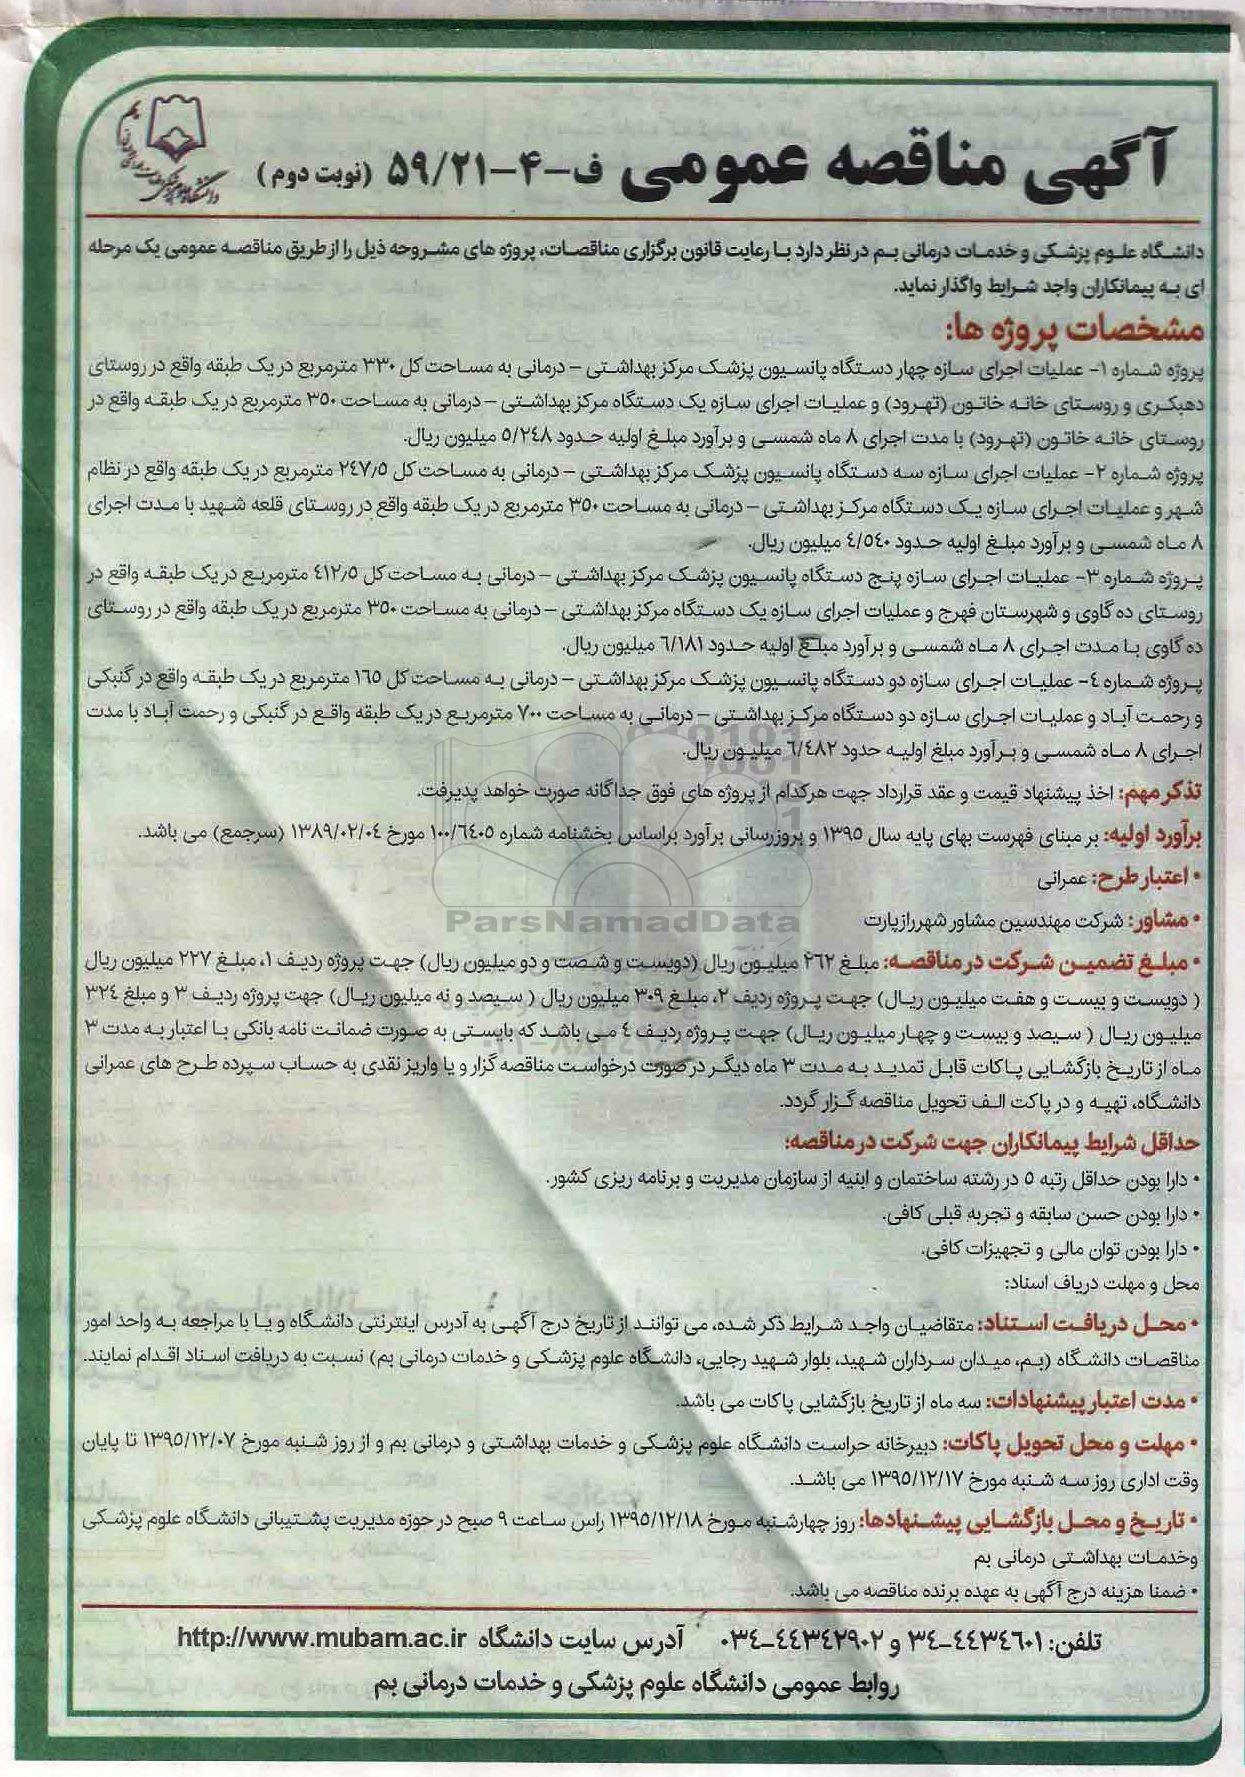 آگهی مناقصه عمومی ف-۴-۵۹/۲۱ (نوبت دوم)
دانشگاه علوم پزشکی و خدمات درمانی بم در نظر دارد با رعایت قانون برگزاری مناقصات، پروژه های مشروحه ذیل را از طریق مناقصه عمومی یک مرحله
ای به پیمانکاران واجد شرایط واگذار نماید.
مشخصات پروژه ها:
پروژه شماره ۱- عملیات اجرای سازه چهار دستگاه پانسیون پزشک مرکز بهداشتی – درمانی به مساحت کل ۳۳۰ مترمربع در یک طبقه واقع در روستای
دهبکری و روستای خانه خاتون (تهرود) و عملیات اجرای سازه یک دستگاه مرکز بهداشتی – درمانی به مساحت ۳۵۰ مترمربع در یک طبقه واقع در
روستای خانه خاتون (تهرود) با مدت اجرای ۸ ماه شمسی و برآورد مبلغ اولیه حدود ۵/۲۴۸ میلیون ریال.
پروژه شماره ۲- عملیات اجرای سازه سه دستگاه پانسیون پزشک مرکز بهداشتی – درمانی به مساحت کل ۲۴۷/۵ مترمربع در یک طبقه واقع در نظام
شهر و عملیات اجرای سازه یک دستگاه مرکز بهداشتی – درمانی به مساحت ۳۵۰ مترمربع در یک طبقه واقع در روستای قلعه شهید با مدت اجرای
۸ ماه شمسی و برآورد مبلغ اولیه حدود ۴/۵۴۰ میلیون ریال.
پروژه شماره ۳- عملیات اجرای سازه پنج دستگاه پانسیون پزشک مرکز بهداشتی – درمانی به مساحت کل ۴۱۲/۵ مترمربع در یک طبقه واقع در
روستای ده گاوی و شهرستان فهرج و عملیات اجرای سازه یک دستگاه مرکز بهداشتی – درمانی به مساحت ۳۵۰ مترمربع در یک طبقه واقع در روستای
ده گاوی با مدت اجرای ۸ ماه شمسی و برآورد مبلغ اولیه حدود ۶/۱۸۱ میلیون ریال.
پروژه شماره ۴- عملیات اجرای سازه دو دستگاه پانسیون پزشک مرکز بهداشتی – درمانی به مساحت کل ۱۶۵ مترمربع در یک طبقه واقع در گنبکی
و رحمت آباد و عملیات اجرای سازه دو دستگاه مرکز بهداشتی – درمانی به مساحت ۷۰۰ مترمربع در یک طبقه واقع در گنبکی و رحمت آباد با مدت
اجرای ۸ ماه شمسی و برآورد مبلغ اولیه حدود ۶/۴۸۲ میلیون ریال.
تذکر مهم: اخذ پیشنهاد قیمت و عقد قرارداد جهت هرکدام از پروژه های فوق جداگانه صورت خواهد پذیرفت.
برآورد اولیه: بر مبنای فهرست بهای پایه سال ۱۳۹۵ و بروزرسانی برآورد براساس بخشنامه شماره ۱۰۰/۶۴۰۵ مورخ ۱۳۸۹/۰۲/۰۴ (سرجمع) می باشد.
• اعتبار طرح: عمرانی
• مشاور: شرکت مهندسین مشاور شهرراز پارت
ParsNamadData
• مبلغ تضمین شرکت در مناقصه: مبلغ ۲۶۲ میلیون ریال (دویست و شصت و دو میلیون ریال) جهت پروژه ردیف ۱، مبلغ ۲۲۷ میلیون ریال
( دویست و بیست و هفت میلیون ریال) جهت پروژه ردیف ۲، مبلغ ۳۰۹ میلیون ریال ( سیصد و نه میلیون ریال) جهت پروژه ردیف ۳ و مبلغ ۳۲۴
میلیون ریال ( سیصد و بیست و چهار میلیون ریال) جهت پروژه ردیف ۴ می باشد که بایستی به صورت ضمانت نامه بانکی با اعتبار به مدت ۳
ماه از تاریخ بازگشایی پاکات قابل تمدید به مدت ۳ ماه دیگر در صورت درخواست مناقصه گزار و یا واریز نقدی به حساب سپرده طرح های عمرانی
دانشگاه، تهیه و در پاکت الف تحویل مناقصه گزار گردد.
حداقل شرایط پیمانکاران جهت شرکت در مناقصه:
• دارا بودن حداقل رتبه ۵ در رشته ساختمان و ابنیه از سازمان مدیریت و برنامه ریزی کشور.
• دارا بودن حسن سابقه و تجربه قبلی کافی.
• دارا بودن توان مالی و تجهیزات کافی.
محل و مهلت دریاف اسناد:
• محل دریافت استناد: متقاضیان واجد شرایط ذکر شده، می توانند از تاریخ درج آگهی به آدرس اینترنتی دانشگاه و یا با مراجعه به واحد امور
مناقصات دانشگاه (بم، میدان سرداران شهید، بلوار شهید رجایی، دانشگاه علوم پزشکی و خدمات درمانی بم) نسبت به دریافت اسناد اقدام نمایند.
• مدت اعتبار پیشنهادات: سه ماه از تاریخ بازگشایی پاکات می باشد.
• مهلت و محل تحویل پاکات: دبیرخانه حراست دانشگاه علوم پزشکی و خدمات بهداشتی و درمانی بم و از روز شنبه مورخ ۱۳۹۵/۱۲/۰۷ تا پایان
وقت اداری روز سه شنبه مورخ ۱۳۹۵/۱۲/۱۷ می باشد.
• تاریخ و محل بازگشایی پیشنهادها: روز چهارشنبه مورخ ۱۳۹۵/۱۲/۱۸ راس ساعت ۹ صبح در حوزه مدیریت پشتیبانی دانشگاه علوم پزشکی
وخدمات بهداشتی درمانی بم
• ضمنا هزینه درج آگهی به عهده برنده مناقصه می باشد.
تلفن: ۳۴-۴۴۳۴۶۰۱ و ۰۳۴-۴۴۳۴۲۹۰۲ آدرس سایت دانشگاه http://www.mubam.ac.ir
روابط عمومی دانشگاه علوم پزشکی و خدمات درمانی بم